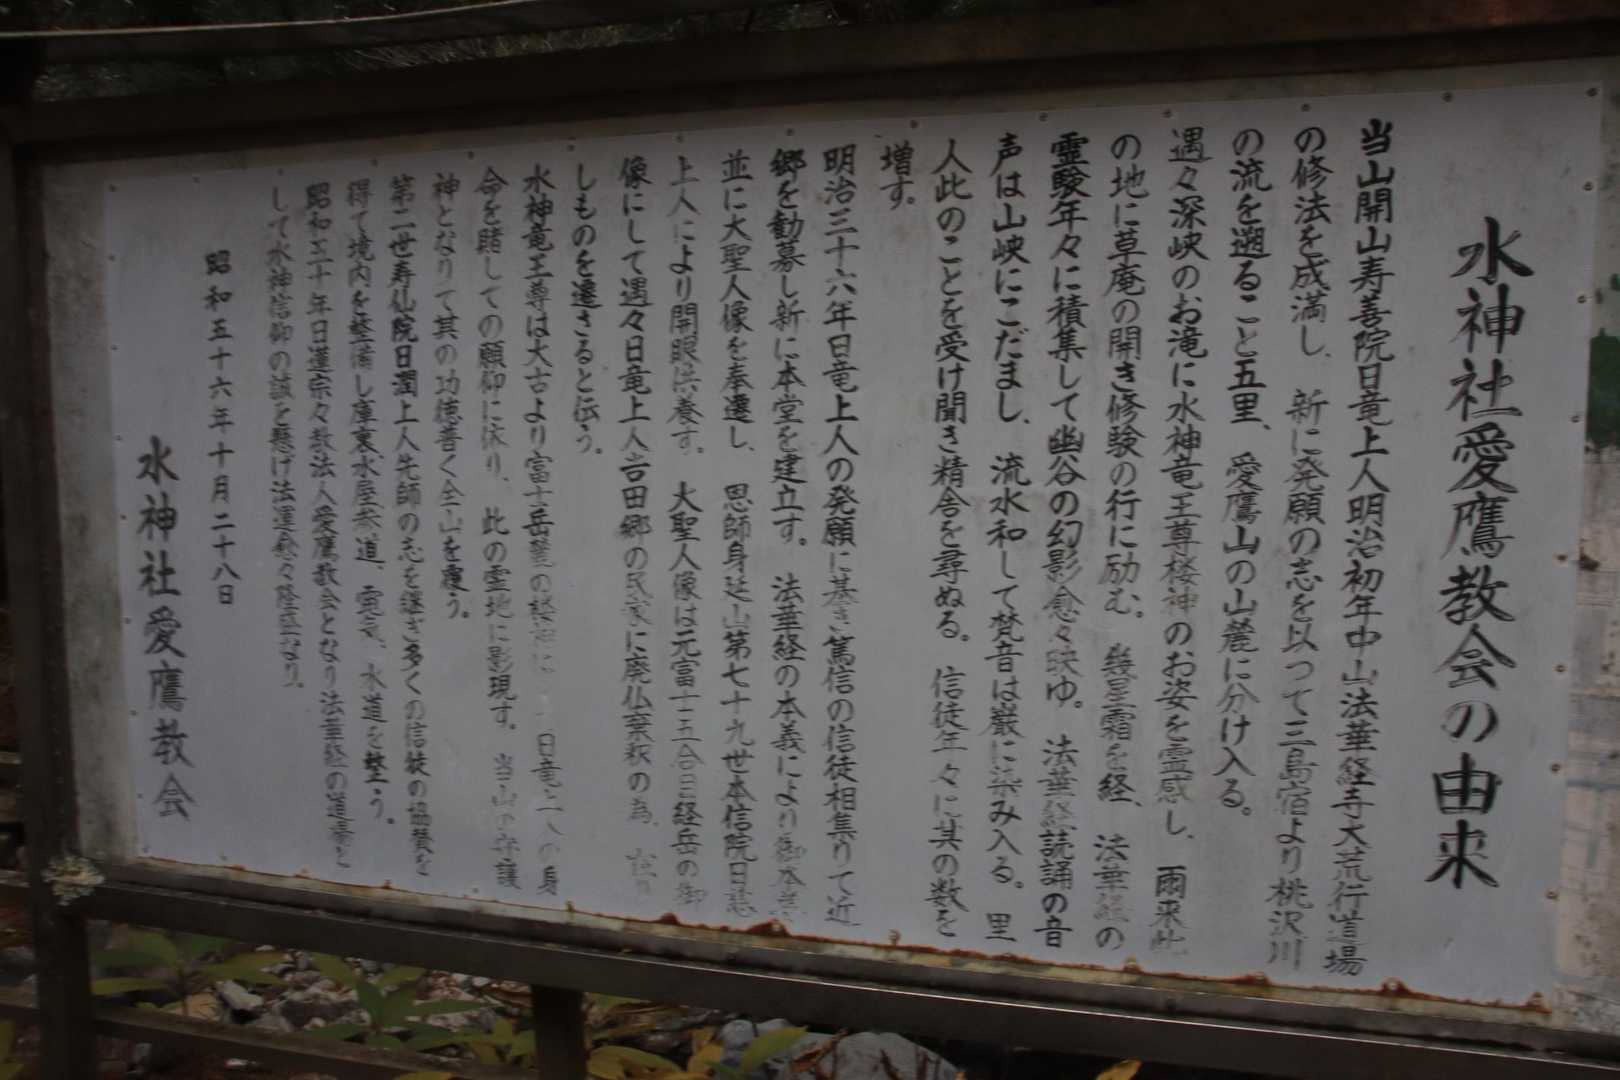 水神社愛鷹教会の由来
当山開山寿善院日竜上人明治初年中山法華経寺大荒行道場
の修法を成満し、新に発願の志を以つて三島宿より桃沢川
の流を遡ること五里、愛鷹山の山麓に分け入る。
遇々深峡のお滝に水神竜王尊桜神のお姿を霊感し、爾来此
の地に草庵の開き修験の行に励む。幾星霜を経、法華経の
霊験年々に積集して幽谷の幻影愈々映ゆ。法華経読誦の音
声は山峡にこだまし、流水和して梵音は巌に染み入る。里
人此のことを受け聞き精舎を尋ぬる。信徒年々に其の数を
増す。
明治三十六年日竜上人の発願に基き篤信の信徒相集りて近
郷を勧募し新に本堂を建立す。法華経の本義により御本尊
並に大聖人像を奉遷し、恩師身延山第七十九世本信院日慈
上人により開眼供養す。大聖人像は元富士五合目経岳の御
像にして遇々日竜上人吉田郷の民家に廃仏棄釈の為、
しものを遷さると伝う。
水神竜王尊は大古より富士岳麓の 日竜上人の身
命を賭しての願仰に依り、此の霊地に影現す。当山の守護
神となりて其の功徳善く全山を覆う。
第二世寿仙院日潤上人先師の志を継ぎ多くの信徒の協賛を
得て境内を整備し庫裏、水屋、参道、電気、水道を整う。
昭和五十年日蓮宗々教法人愛鷹教会となり法華経の道場と
して水神信仰の誠を懸け法運愈々隆盛なり。
昭和五十六年十月二十八日
水神社愛鷹教会